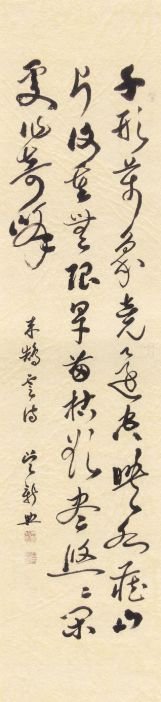 千形萬象竟還空映水藏山
片復重無限旱苗枯欲盡悠〻閑
處作奇峰
來鵠雲詩